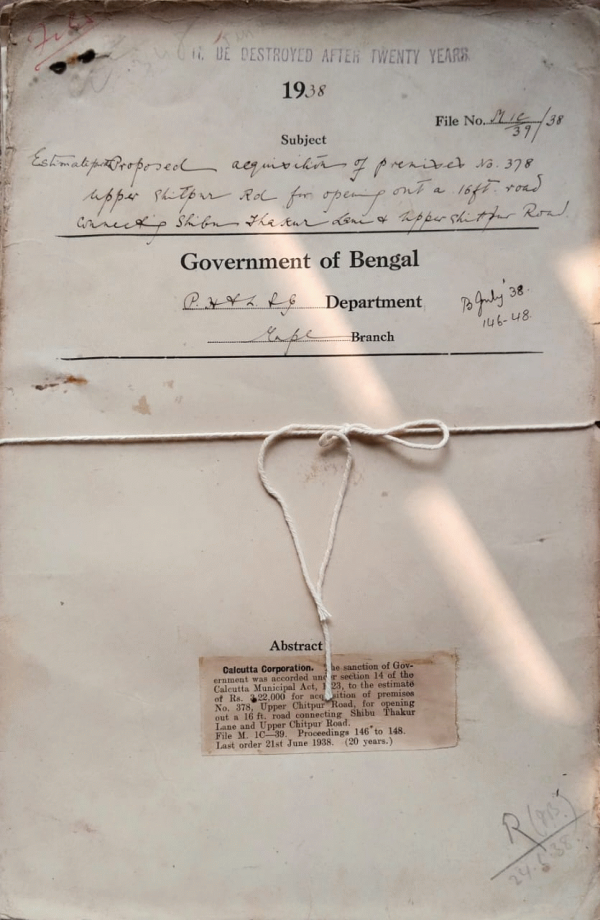 TO BE DESTROYED AFTER TWENTY YEARS
1938
File No. M 1C/39/38
Subject
Estimate for Proposed acquisition of premises No. 378
Upper Chitpur Rd for opening out a 16ft. road
connecting Shibu Thakur Lane & Upper Chitpur Road.
Government of Bengal
Department
B July '38.
146-48.
Branch
Abstract
Calcutta Corporation. The sanction of Gov-
ernment was accorded under section 14 of the
Calcutta Municipal Act, 1923, to the estimate
of Rs. 22,000 for acquisition of premises
No. 378, Upper Chitpur Road, for opening
out a 16 ft. road connecting Shibu Thakur
Lane and Upper Chitpur Road.
File M. 1C—39. Proceedings 146 to 148.
Last order 21st June 1938. (20 years.)
R